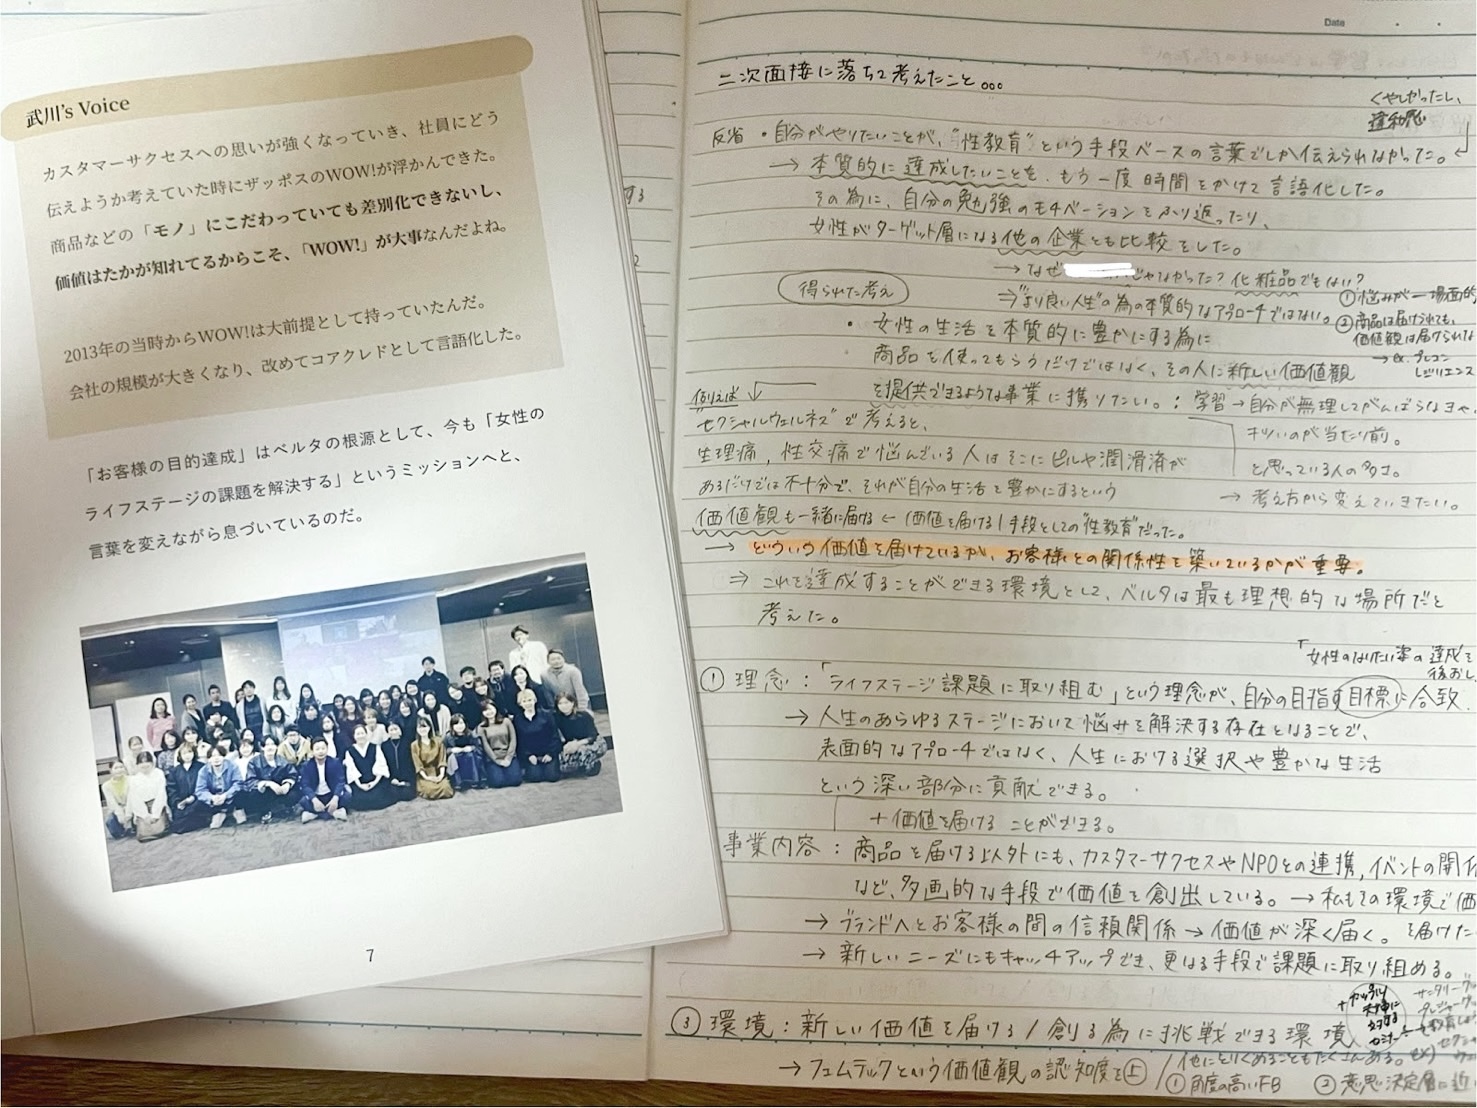 武川's Voice
カスタマーサクセスへの思いが強くなっていき、社員にどう
伝えようか考えていた時にザッポスのWOW!が浮かんできた。
商品などの「モノ」にこだわっていても差別化できないし、
価値はたかが知れてるからこそ、「WOW!」が大事なんだよね。
2013年の当時からWOW!は大前提として持っていたんだ。
会社の規模が大きくなり、改めてコアクレドとして言語化した。
「お客様の目的達成」はベルタの根源として、今も「女性の
ライフステージの課題を解決する」というミッションへと、
言葉を変えながら息づいているのだ。
7
Date
二次面接に落ちて考えたこと...
くやしかったし、
違和感
反省・自分がやりたいことが、"性教育"という手段ベースの言葉でしか伝えられなかった。
→ 本質的に達成したいことを、もう一度時間をかけて言語化した。
その為に、自分の勉強のモチベーションをふり返ったり、
女性がターゲット層になる他の企業とも比較をした。
→ なぜ じゃなかった? 化粧品でもない?
⇒"より良い人生"の為の本質的なアプローチではない。
①悩みが一場面的
②商品は届けられても、
価値観は届けられな
→ ex. プレコン
得られた考え
・女性の生活を本質的に豊かにする為に
商品を使ってもらうだけではなく、その人に新しい価値観
を提供できるような事業に携りたい。: 学習→自分が無理してがんばらなきゃ、
キツいのが当たり前。
と思っている人の多さ。
→ 考え方から変えていきたい。
例えば
"セクシャルウェルネス"で考えると、
生理痛、性交痛で悩んでいる人はそこにピルや潤滑済が
あるだけでは不十分で、それが自分の生活を豊かにするという
価値観も一緒に届ける ← 価値を届ける1手段としての"性教育"だった。
→ どういう価値を届けているか、お客様との関係性を築いているかが重要。
⇒ これを達成することができる環境として、ベルタは最も理想的な場所だと
考えた。
「女性のなりたい姿の達成を
後おし
① 理念:「ライフステージ課題に取り組む」という理念が、自分の目指す目標に合致.
→ 人生のあらゆるステージにおいて悩みを解決する存在となることで、
表面的なアプローチではなく、人生における選択や豊かな生活
という深い部分に貢献できる。
+価値を届けることができる。
事業内容:商品を届ける以外にも、カスタマーサクセスやNPOとの連携,イベントの開催
など、多画的な手段で価値を創出している。→私もこの環境で価
→ ブランドへとお客様の間の信頼関係→価値が深く届く。を届けた
→ 新しいニーズにもキャッチアップでき、更なる手段で課題に取り組める。
③ 環境:新しい価値を届ける/創る為に挑戦できる環境
+カップル
セミナー
→ フェムテックという価値観の認知度を上
① 角度の高いFB ② 意思決定層に近